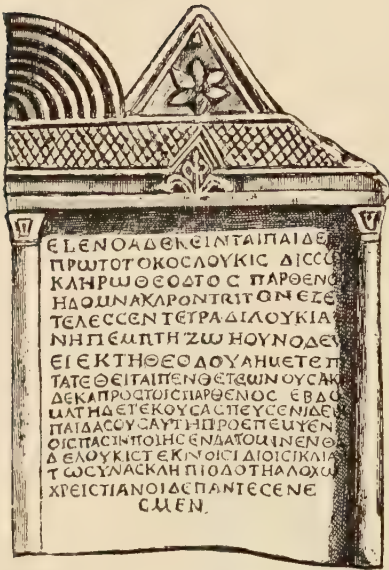 ΕLΕΝΟΑΔΕΚΕΙΝΤΑΙΠΑΙΔΕ
ΠΡΩΤΟΤΟΚΟCΛΟΥΚΙC ΔΙCCΩ
ΚΛΗΡΩΘΕΟΔΤΟC ΠΑΡΘΕΝΟ
ΗΔΟΜΝΑΚΛΡΟΝΤΡΙΤΟΝΕΞΕ
ΤΕΛΕCCΕΝΤΕΤΡΑΔΙΛΟΥΚΙΑ
ΝΗΠΕΜΠΤΗΖΩΗΟΥΝΟΔΕΥ
ΕΙΕΚΤΗΘΕΟΔΟΥΛΗΜΕΤΕΠ
ΤΑΤΕΘΕΙΤΑΙΠΕΝΘΕΤΕΩΝΟΥCΑΚ
ΔΕΚΑΠΡΟCΤΟΙCΠΑΡΘΕΝΟC ΕΒΔΟ
ΜΑΤΗΔΕΤΕΚΟΥCΑCΠΕΥCΕΝΙΔΕΙ
ΠΑΙΔΑCΟΥCΑΥΤΗΠΡΟΕΠΕΜΨΕΝ
ΟΙCΠΑCΙΝΠΟΙΗCΕΝΔΑΤΟΜΙΝΕΝΘ
ΔΕΛΟΥΚΙCΤΕΚΙΝΟΙCΙΔΙΟΙCΙΚΛΙΑ
ΤΩCΥΝΑCΚΛΗΠΙΟΔΟΤΗΑΛΟΧΩ
ΧΡΕΙCΤΙΑΝΟΙΔΕΠΑΝΤΕCΕΝΕ
CΜΕΝ.